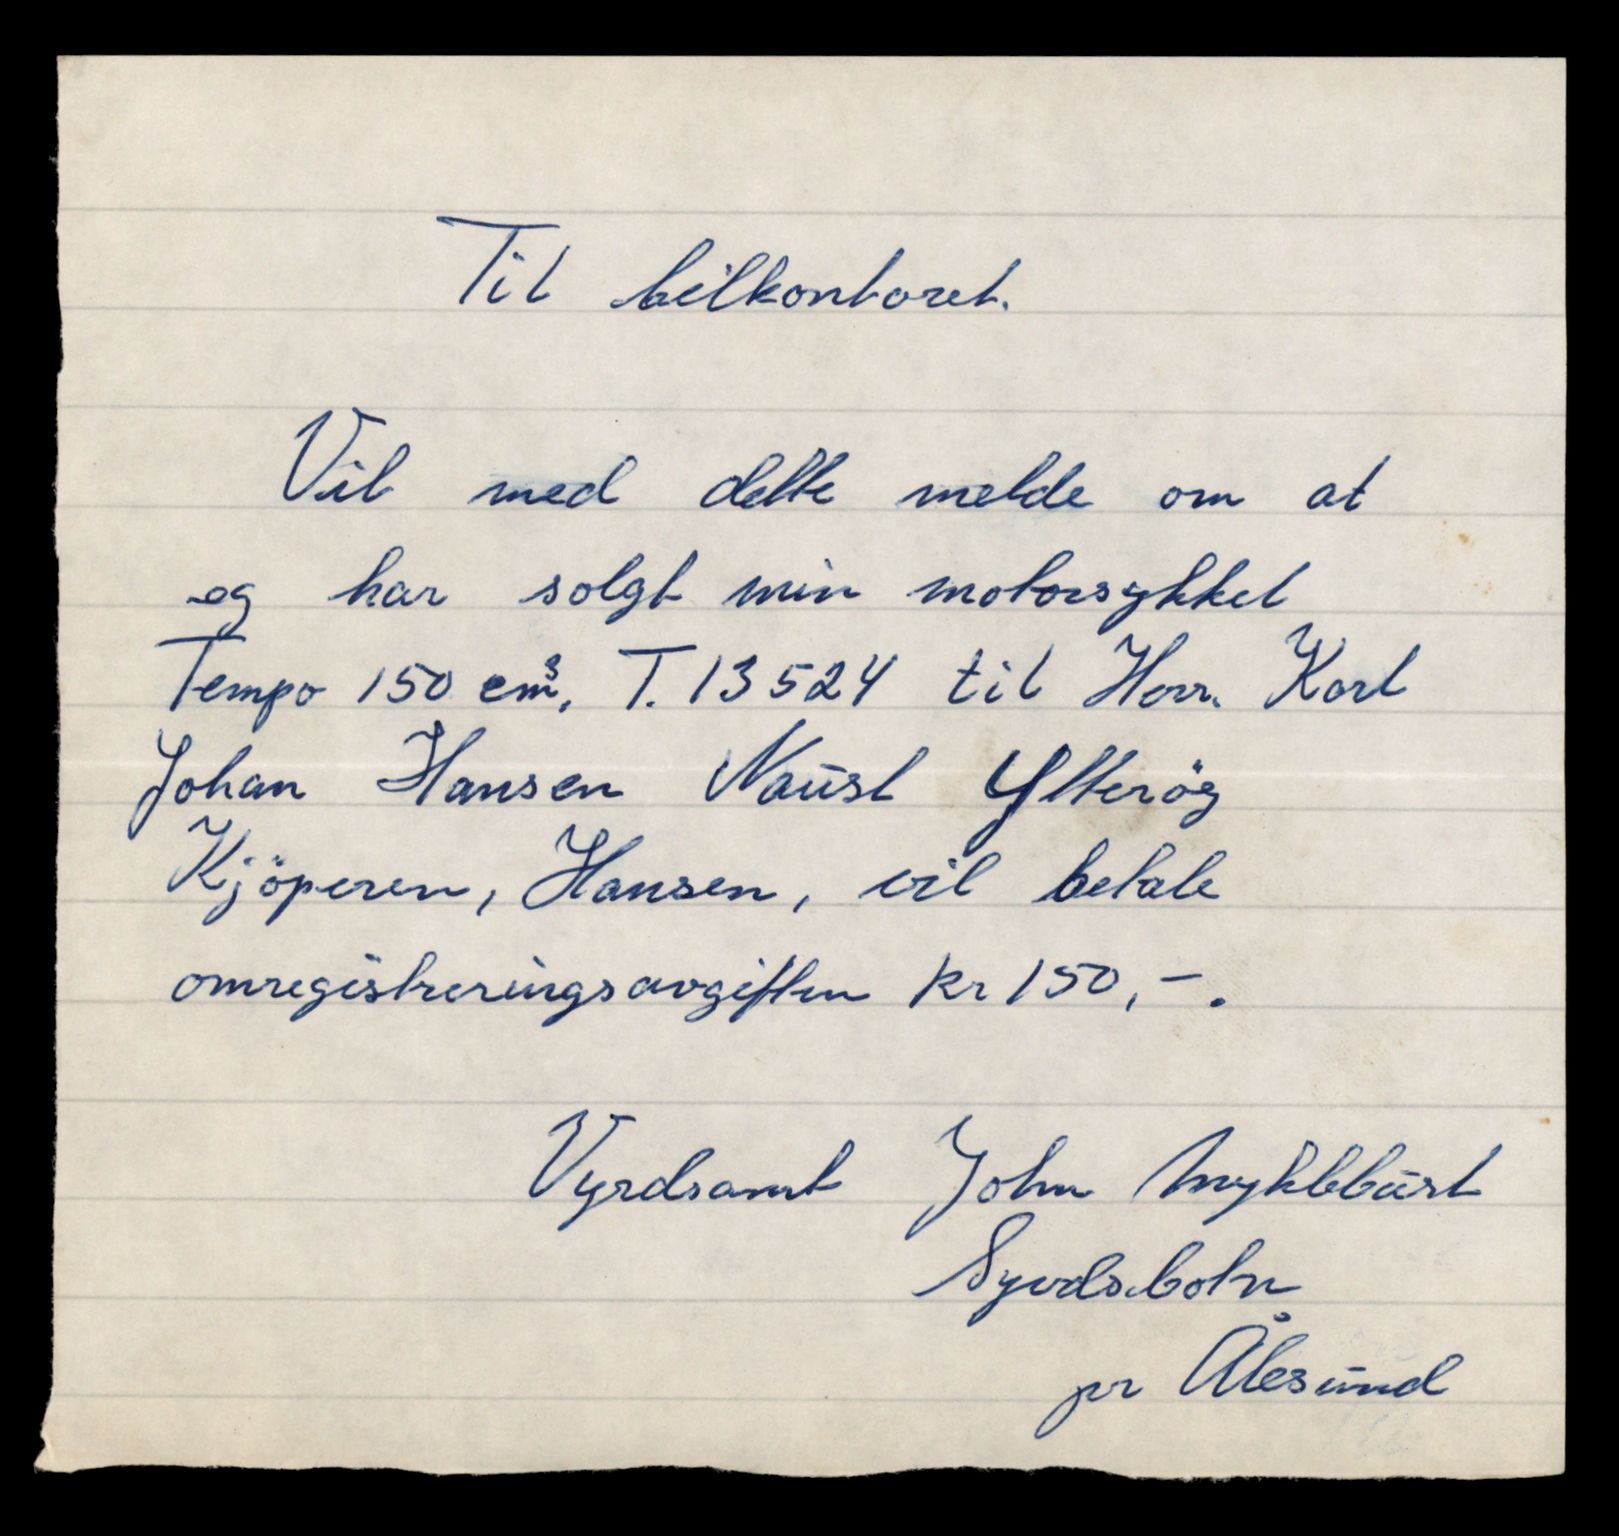 Til bilkontoret.
Vil med dette melde om at
eg har solgt min motorsykkel
Tempo 150 cm³, T. 13524 til Herr. Karl
Johan Hansen Naust Ytterög
Kjöperen, Hansen, vil betale
omregistreringsavgiften kr 150,-.
Vyrdsamt John Myklebust
Syvdsbotn
pr Ålesund